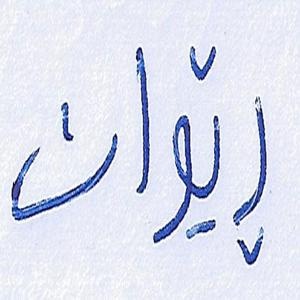 ڕێوان